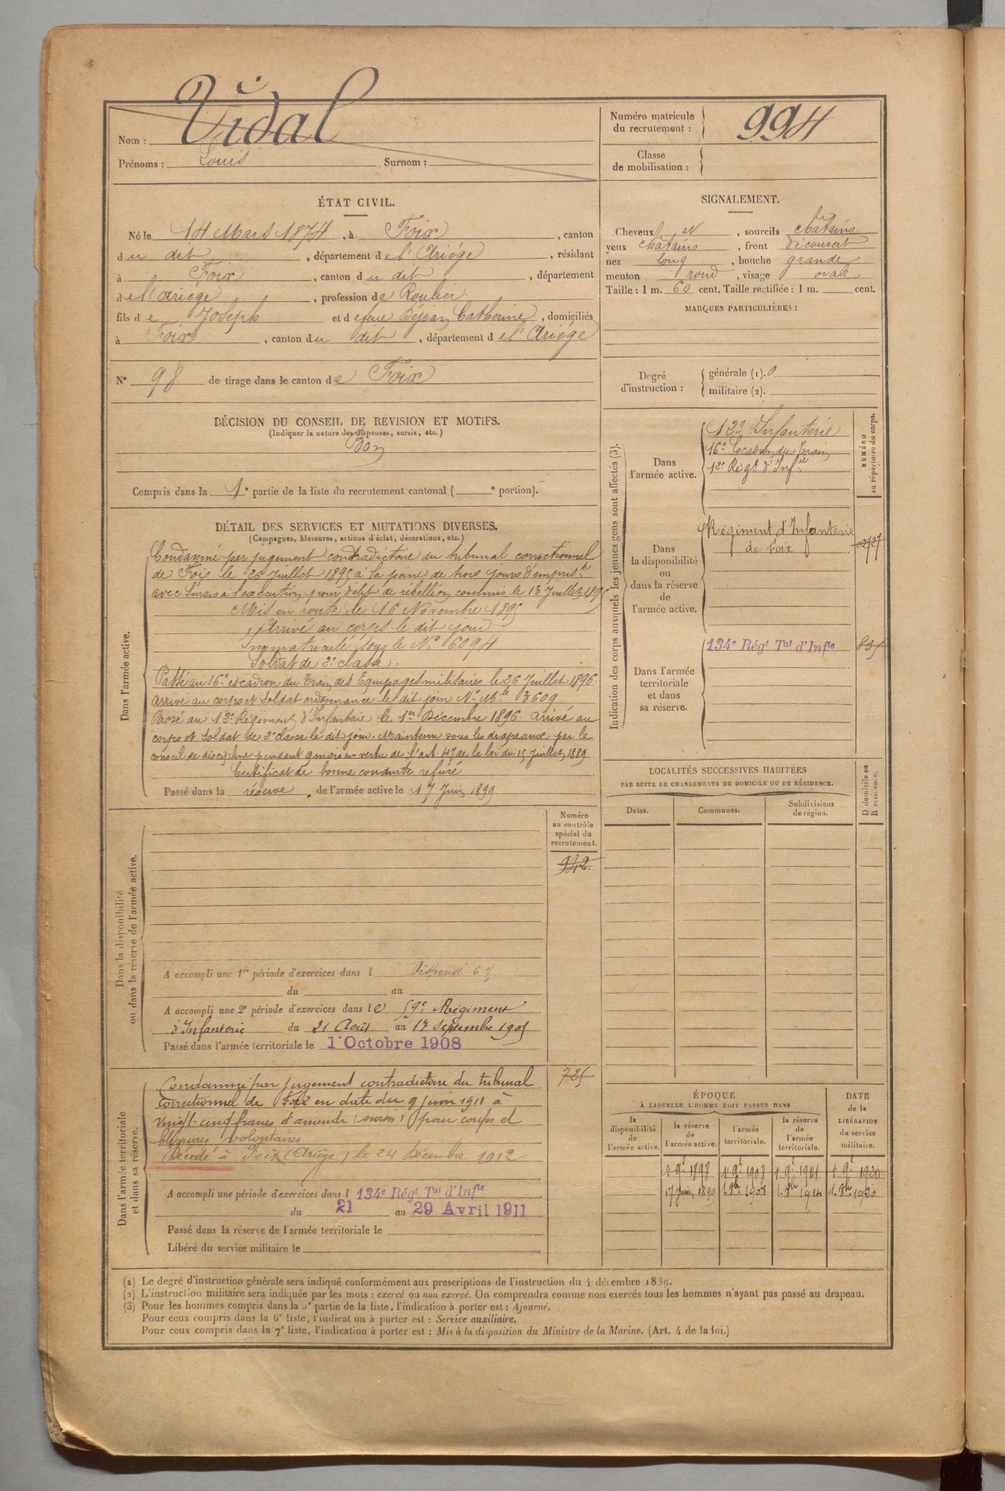 Nom : Vidal
Prénoms : Louis Surnom :
Numéro matricule du recrutement : 994
Classe de mobilisation :
ÉTAT CIVIL.
Né le 14 Mars 1874, à Foix, canton
du dit, département de l'Ariège, résidant
à Foix, canton du dit, département
de l'Ariège, profession de Roulier
fils de Joseph et de feue Catherine, domiciliés
à Foix, canton du dit, département de l'Ariège
N° 98 de tirage dans le canton de Foix
SIGNALEMENT.
Cheveux et, sourcils châtains
yeux châtains, front découvert
nez long, bouche grande
menton rond, visage ovale
Taille : 1 m. 60 cent. Taille rectifiée : 1 m. cent.
MARQUES PARTICULIÈRES :
Degré d'instruction : générale (1). 0
militaire (2).
DÉCISION DU CONSEIL DE REVISION ET MOTIFS.
(Indiquer la nature des dispenses, sursis, etc.)
Bon
Compris dans la 1e partie de la liste du recrutement cantonal ( e portion).
DÉTAIL DES SERVICES ET MUTATIONS DIVERSES.
(Campagnes, blessures, actions d'éclat, décorations, etc.)
Dans l'armée active.
Condamné par jugement contradictoire du tribunal correctionnel
de Foix le Juillet 1895 à la peine de trois jours d'emprist
avec sursis à l'exécution pour délit de rébellion commis le 13 Juillet 1895
Mis en route le 16 Novembre 1895
Arrivé au corps le dit jour
Immatriculé sous le N° 6094
Soldat de 2e classe.
Passé au 16e escadron du Train des Equipages militaires le 26 Juillet 1896
arrivé au corps et Soldat ordonnance le dit jour N° Mle 3609
Passé au 12e Régiment d'Infanterie le 1er Décembre 1896. Arrivé au
corps et Soldat de 2e classe le dit jour. Maintenu sous les drapeaux par le
conseil de discipline pendant 9 mois en vertu de l'art. 47 de la loi du 15 Juillet 1889
Certificat de bonne conduite refusé
Passé dans la réserve de l'armée active le 17 Juin 1899
Indication des corps auxquels les jeunes gens sont affectés (3).
NUMÉRO au répertoire du corps.
Dans l'armée active.
12e Infanterie
16e Escadron du Train
12e Régt d'Infie
Dans la disponibilité ou dans la réserve de l'armée active.
Régiment d'Infanterie
de Foix
Dans l'armée territoriale et dans sa réserve.
134e Régt Tal d'Infie
LOCALITÉS SUCCESSIVES HABITÉES
PAR SUITE DE CHANGEMENTS DE DOMICILE OU DE RÉSIDENCE.
Dates. Communes. Subdivisions de région. D domicile ou R résidence.
Dans la disponibilité ou dans la réserve de l'armée active.
Numéro au contrôle spécial du recrutement.
942
A accompli une 1re période d'exercices dans l Dispensé
du au
A accompli une 2e période d'exercices dans le 59e Régiment
d'Infanterie du 21 Août au 17 Septembre 1905
Passé dans l'armée territoriale le 1 Octobre 1908
Dans l'armée territoriale et dans sa réserve.
725
Condamné par jugement contradictoire du tribunal
correctionnel de Foix en date du 9 juin 1911 à
vingt-cinq francs d'amende (sursis) pour coups et
blessures volontaires
Décédé à Foix (Ariège) le 24 Décembre 1912
A accompli une période d'exercices dans l 134e Régt Tal d'Infie
du 21 au 29 Avril 1911
Passé dans la réserve de l'armée territoriale le
Libéré du service militaire le
ÉPOQUE
À LAQUELLE L'HOMME DOIT PASSER DANS
DATE de la LIBÉRATION du service militaire.
la disponibilité de l'armée active. la réserve de l'armée active. l'armée territoriale. la réserve de l'armée territoriale.
1 9e 1898 1 9e 1908 1 9e 1914 1 9e 1920
17 Juin 1899 1 8bre 1908 1 8bre 1914 1 8bre 1920
(1) Le degré d'instruction générale sera indiqué conformément aux prescriptions de l'instruction du 4 décembre 1889.
(2) L'instruction militaire sera indiquée par les mots : exercé ou non exercé. On comprendra comme non exercés tous les hommes n'ayant pas passé au drapeau.
(3) Pour les hommes compris dans la 5e partie de la liste, l'indication à porter est : Ajourné.
Pour ceux compris dans la 6e liste, l'indication à porter est : Service auxiliaire.
Pour ceux compris dans la 7e liste, l'indication à porter est : Mis à la disposition du Ministre de la Marine. (Art. 4 de la loi.)